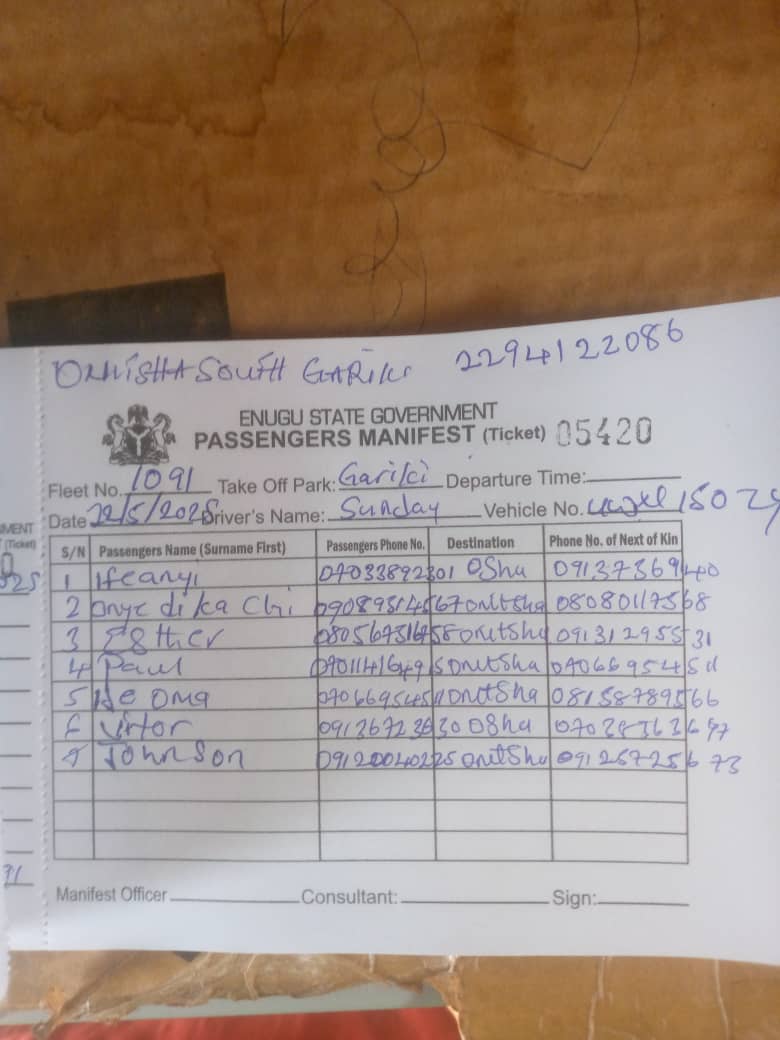 ONITSHA SOUTH GARIKI 2294122086
ENUGU STATE GOVERNMENT
PASSENGERS MANIFEST (Ticket) 05420
Fleet No. 1091 Take Off Park: Gariki Departure Time:
Date 22/5/2025 Driver's Name: Sunday Vehicle No.
S/N Passengers Name (Surname First) Passengers Phone No. Destination Phone No. of Next of Kin
1 Ifeanyi 07033892301 OSha 09137369440
2 Onyedika Chi 09089514567 Onitsha 08080117568
3 Esther Onitsha 09131295531
4 Paul Onitsha
5 Onitsha 08158789566
6 Victor 09136723630 OSha
7 Johnson 09120040225 Onitsha 09125725673
Manifest Officer Consultant: Sign:
MENT
(Ticket)